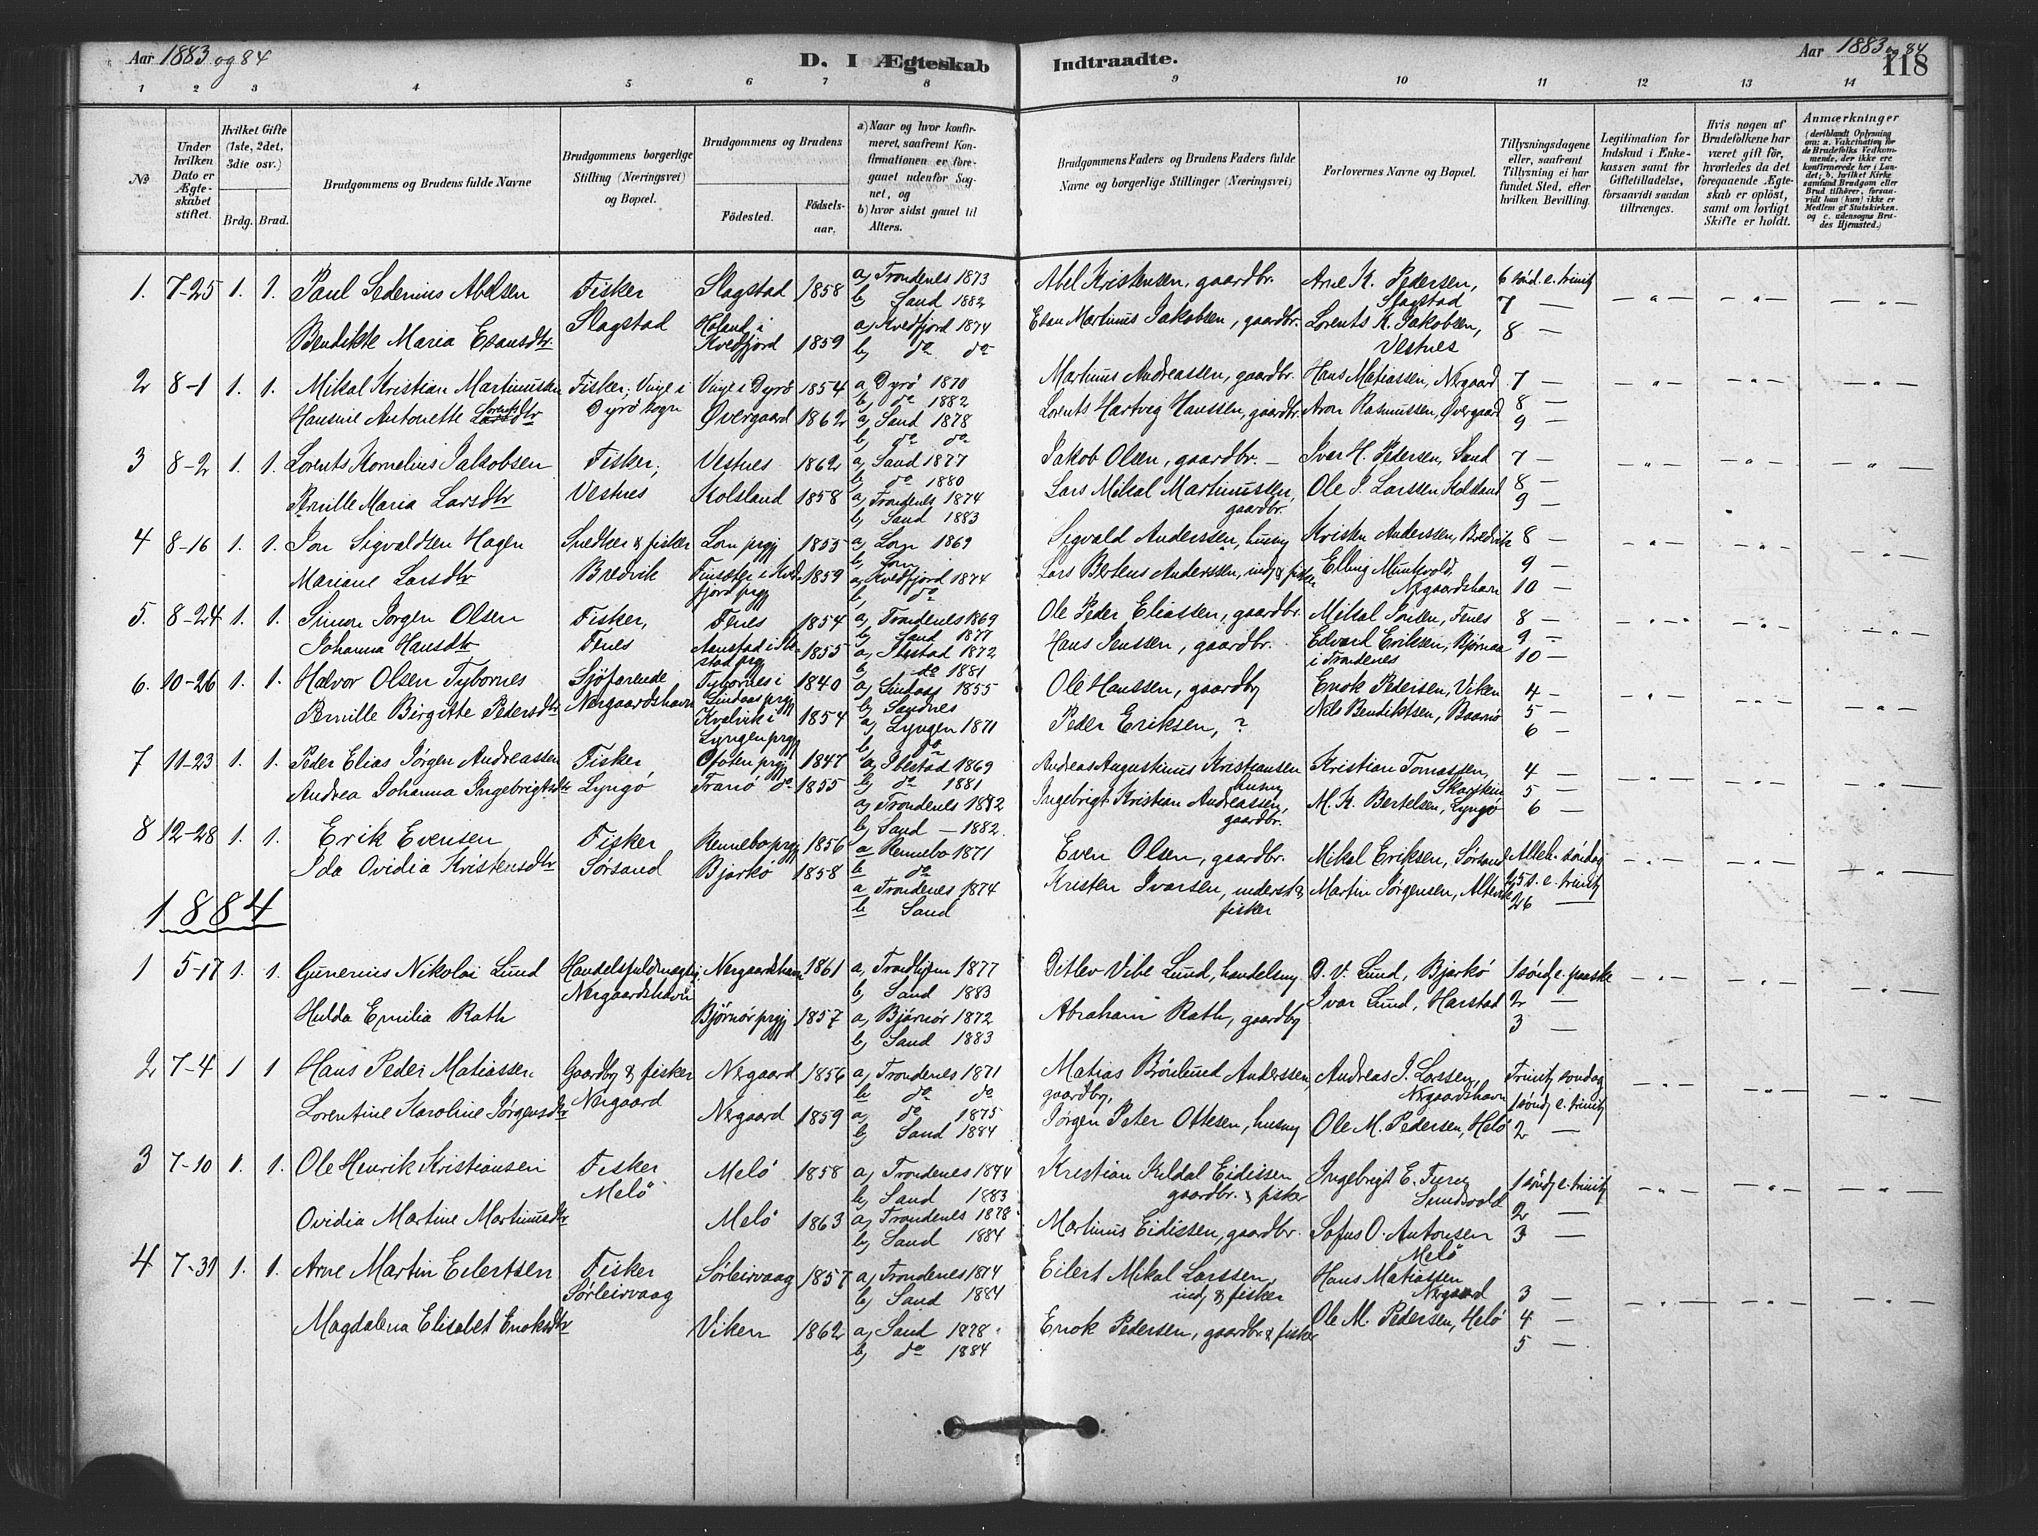 Aar 1883 og 84
D. I Ægteskab Indtraadte.
Aar 1883 og 84
118
1 2 3 4 5 6 7 8 9 10 11 12 13 14
No
Under hvilken Dato er Ægteskabet stiftet.
Hvilket Gifte (1ste, 2det, 3die osv.)
Brdg. Brud.
Brudgommens og Brudens fulde Navne
Brudgommens borgerlige Stilling (Næringsvei) og Bopæl.
Brudgommens og Brudens
Födested.
Födselsaar.
a) Naar og hvor konfirmeret, saafremt Konfirmationen er foregaaet udenfor Sognet, og
b) hvor sidst gaaet til Alters.
Brudgommens Faders og Brudens Faders fulde Navne og borgerlige Stillinger (Næringsvei)
Forlovernes Navne og Bopæl.
Tillysningsdagene eller, saafremt Tillysning ei har fundet Sted, efter hvilken Bevilling.
Legitimation for Indskud i Enkekassen samt for Giftetilladelse, forsaavidt saadan tiltrænges.
Hvis nogen af Brudefolkene har været gift för, hvorledes da det foregaaende Ægteskab er oplöst, samt om lovligt Skifte er holdt.
Anmærkninger
(deriblandt Oplysning om: a. Vakcination for de Brudefolks Vedkommende, der ikke ere konfirmerede her i Landet; b. hvilket Kirkesamfund Brudgom eller Brud tilhörer, forsaavidt han (hun) ikke er Medlem af Statskirken, og c. udensogns Brudes Hjemsted.)
1. 7-25 1. 1. Paul Sedenius Abelsen Fisker Slagstad 1858 a) Trondenes 1873 Abel Kristensen, gaardbr. Arne K. Pedersen, 6 sönd. e. trinit
Slagstad b) Sand 1882 Slagstad 7 —
Bendikte Maria Esausdtr Holand i Kvedfjord 1859 a) Kvedfjord 1874 Esau Martinus Jakobsen, gaardbr. Lorents K. Jakobsen, 8 —
b) do do Vestnes
2 8-1 1. 1. Mikal Kristian Martinussen Fisker, Vinje i Vinje i Dyrö 1854 a Dyrö 1870 Martinus Andreassen, gaardbr. Hans Matiassen, Nergaard 7 —
Dyrö sogn b) do 1882
Hansine Antonette Lorentsdtr Övergaard 1862 a) Sand 1878 Lorents Hartvig Hanssen, gaardbr. Aron Rasmussen, Övergaard 8 —
b) do do 9 —
3 8-2 1. 1. Lorents Kornelius Jakobsen Fisker, Vestnes 1862 a) Sand 1877 Jakob Olsen, gaardbr. — Ivar H. Pedersen, Sand 7 —
Vestnes b) do 1880
Pernille Maria Larsdtr Kolsland 1858 a) Trondenes 1874 Lars Mikal Martinussen, gaardbr. Ole J. Larssen, Kolsland 8 —
b) Sand 1883 9 —
4 8-16 1. 1. Jon Sigvaldsen Hagen Snedker & fisker Lom prgj 1855 a) Lom 1869 Sigvald Anderssen, husm Kristen Anderssen, Bredvik 8 —
Bredvik b) Lom
Mariane Larsdtr i Kvedfjord prgj 1859 a) Kvedfjord 1874 Lars Bertens Anderssen, indj & fisker Elling Munkvold, 9 —
b) do Nergaardshavn 10 —
5. 8-24 1. 1. Simon Jörgen Olsen Fisker, Fenes 1854 a) Trondenes 1869 Ole Peder Eliassen, gaardbr. Mikal Jonsen, Fenes 8 —
Fenes b) Sand 1877
Johanna Hansdtr Aanstad i Ibestad prgj 1855 a) Ibestad 1872 Hans Jenssen, gaardbr. Edvard Eriksen, 9 —
b) do 1881 i Trondenes 10 —
6. 10-26 1. 1. Halvor Olsen Tybornes Sjöfarende Tybornes i Lindaas prgj 1840 a) Lindaas 1855 Ole Hanssen, gaardbr Enok Pedersen, Viken 4 —
Nergaardshavn b) Sandnes
Pernille Birgitte Pedersdtr Kvalvik i Lyngen prgj 1854 a) Lyngen 1871 Peder Eriksen, ? Nils Bendiktsen, 5 —
b) do 6 —
7 11-23 1. 1. Peder Elias Jörgen Andreassen Fisker Ofoten prgj 1847 a) Ibestad 1869 Andreas Augustinus Kristiansen husm Kristian Tomassen, 4 —
Lyngö b) do 1881 5 —
Andrea Johanna Ingebrigtsdtr Tranö do 1855 a) Trondenes 1872 Ingebrigt Kristian Andreassen, gaardbr. M. K. Bertelsen, Lyngö 6 —
b) Sand — 1882
8 12-28 1. 1. Erik Evensen Fisker Rennebo prgj 1856 a Rennebo 1871 Even Olsen, gaardbr. Mikal Eriksen, Sörsand Alleh. söndag
Sörsand b do
Ida Ovidia Kristensdtr Bjarkö 1858 a Trondenes 1874 Kristen Ivarsen, inderst & fisker Martin Jörgensen, 25 s. e. trinit
b Sand 26 —
1884
1 5-17 1. 1. Gunerius Nikolai Lund Handelsfuldmægtig Nergaardshavn 1861 a) Trondhjem 1877 Ditlev Vibe Lund, handelsm D. V. Lund, Bjarkö 1 sönd e. paaske
Nergaardshavn b) Sand 1883
Hulda Emilia Rath Björnör prgj 1857 a) Björnör 1872 Abraham Rath, gaardbr Ivar Lund, Harstad 2 —
b) Sand 1883 3 —
2 7-4 1 1 Hans Peder Matiassen Gaardbr & fisker Nergaard 1856 a) Trondenes 1871 Matias Brönlund Anderssen gaardbr, Andreas J. Larssen, Nergaardshavn Trinit söndag
Nergaard b do do
Lorentine Karoline Jörgensdtr Nergaard 1859 a) do 1875 Jörgen Peter Ottesen, husm Ole M. Pedersen, Melö 1 sönd e. trinit
b) Sand 1884 2 —
3 7-10 1. 1. Ole Henrik Kristiansen Fisker Melö 1858 a) Trondenes 1874 Kristian Kildal Eidissen gaardbr. & fisker Ingebrigt E. 1 sönd e. trinit
Melö b) Sand 1883
Ovidia Martine Martinusdtr Melö 1863 a) Trondenes 1878 Martinus Eidissen, gaardbr. Sofus O. Antonsen 2 —
b) Sand 1884 Melö 3 —
4 7-31 1. 1. Arne Martin Eilertsen Fisker Sörleirvaag 1857 a) Trondenes 1874 Eilert Mikal Larssen, indj & fisker Hans Matiassen Nergaard 3 —
Sörleirvaag b) Sand 1884
Magdalena Elisabet Enoksdtr Viken 1862 a) Sand 1878 Enok Pedersen, gaardbr & fisker Ole M. Pedersen, Melö 4 —
b) do 1884 5 —